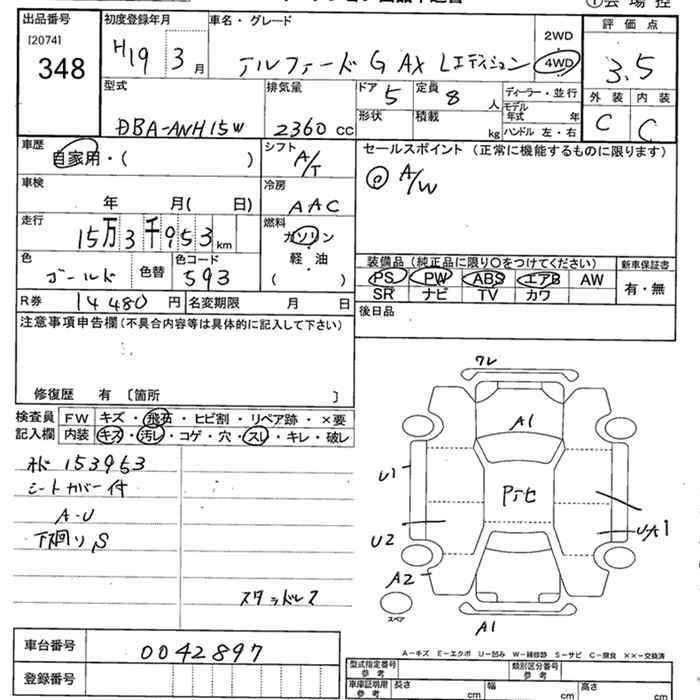 出品番号 [2074] 348
初度登録年月 H19 3月
車名・グレード アルファード G AX Lエディション
2WD 4WD
評価点 3.5
外装 C 内装 C
型式 DBA-ANH15W
排気量 2360 cc
ドア 5 定員 8 人
形状 積載 kg
ディーラー・並行
モデル年式 年
ハンドル 左・右
車歴 自家用・( )
シフト A/T
セールスポイント (正常に機能するものに限ります)
◎ A/W
車検 年 月( 日)
冷房 AAC
走行 15万3千9 53 km
燃料 ガソリン・軽油・( )
色 ゴールド 色替 色コード 593
装備品 (純正品に限り〇をつけてください)
PS PW ABS エアB AW
SR ナビ TV カワ
新車保証書 有・無
R券 14480 円 名変期限 月 日
後日品
注意事項申告欄 (不具合内容等は具体的に記入して下さい)
修復歴 有 〔箇所 〕
検査員記入欄
FW キズ・飛石・ヒビ割・リペア跡・×要
内装 キズ・汚レ・コゲ・穴・スレ・キレ・破レ
メド 153953
シートカバー付
A-U
下廻りS
スタッドレス
ワレ
A1
U1
U2
A2
A1
UA1
スペア
車台番号 0042897
登録番号
A-キズ E-エクボ U-凹み W-補修跡 S-サビ C-腐食 ××-交換済
型式指定番号 参考 類別区分番号 参考
車庫証明用 参考 長さ cm 幅 cm 高さ cm